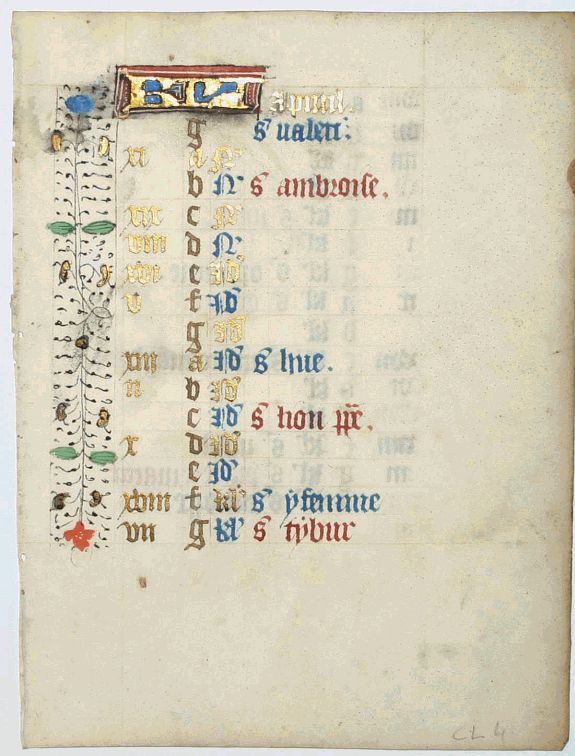 KL Apuril.
g s ualeri.
xi a N
b N s ambroise.
xix c N
viii d N
xvi e Id
v f Id
g Id
xiii a Id s
ii b Id
c Id s lion pp̄e.
x d Id
e Id
xviii f kl s
vii g kl s tybur
CL 4